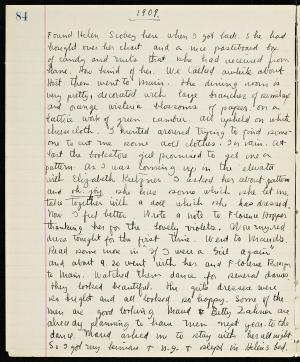 84
1909.
Found Helen Scobey here when I got back. She had
brought over her chart and a nice pasteboard box
of candy and nuts that she had received from
home. How kind of her. We talked awhile about
host then went to Main. The dining room is
very pretty, decorated with large branches of
and orange wisteria blossoms of paper. on a
lattice work of green cambric. all upheld on white
cheesecloth. I hunted around trying to find some-
one to cut me some doll clothes. In vain. At
last the bookstore girl promised to get me a
pattern. As I was coming up in the elevator
with Elizabeth I asked her about pattern
and oh joy she has some which she let me
take together with a doll which she has dressed.
Now I feel better. Wrote a note to Florence
thanking her for the lovely violets. Wore my red
dress tonight for the first time. Went to Maud's.
Read some more in "If I were a girl again"
and about 8 30 went with her and Florence
to Main. Watched them dance for several dances
they looked beautiful. The girls dresses were
so bright and all looked so happy. Some of the
men are good looking. Maud & Betty are
already planning to have men next year to the
dance. Maud asked me to stay with her all night.
So I got my kimono & n.g. & slept in Helen's bed.